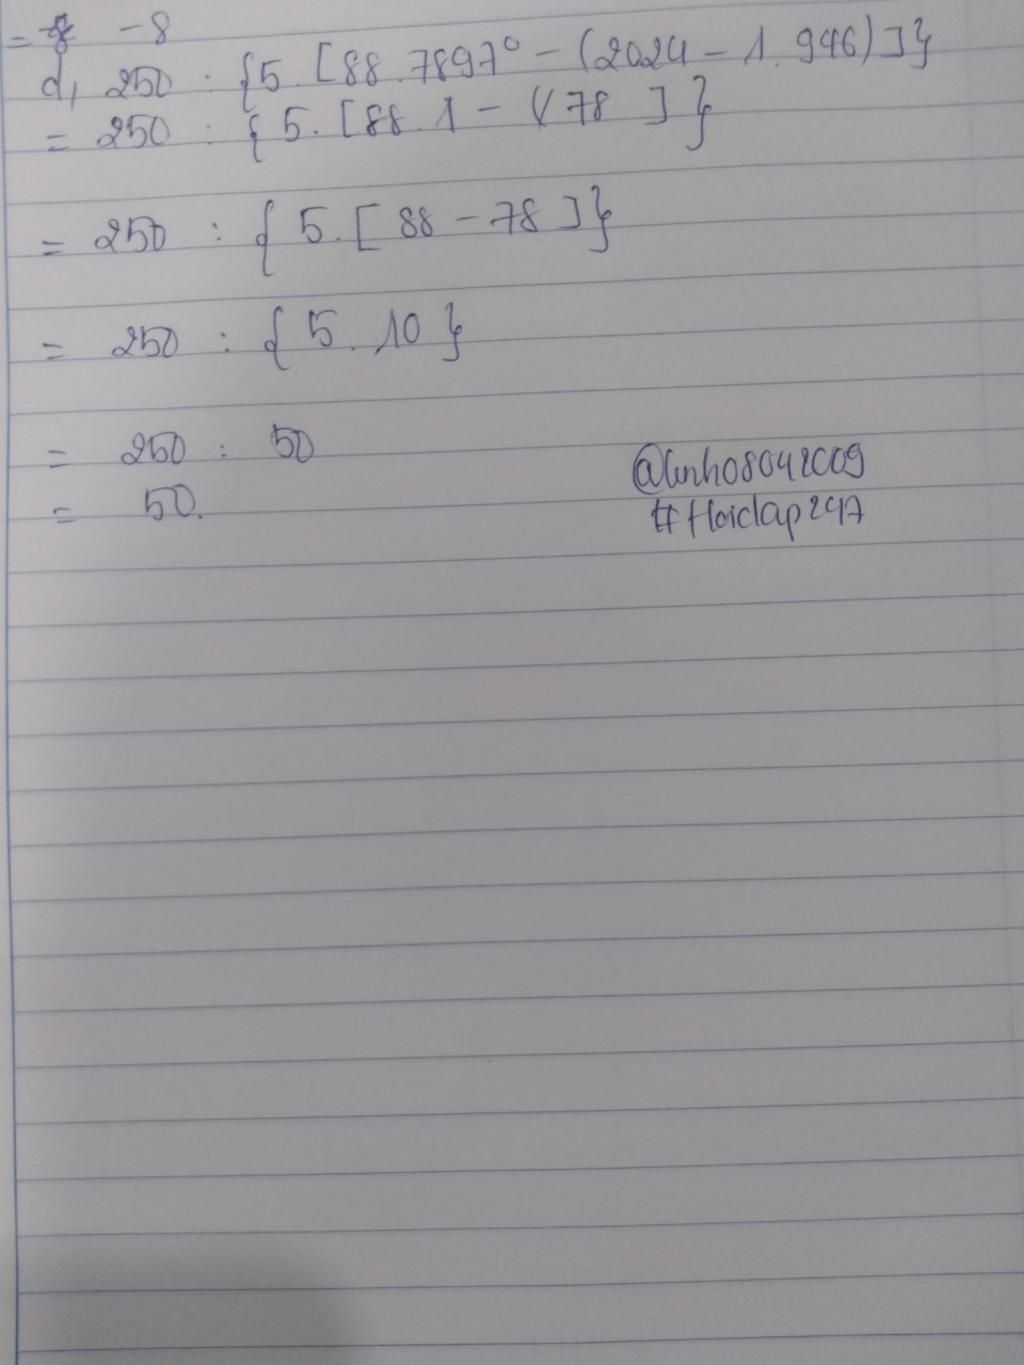 = -8
d, 250 : {5. [88. 7897⁰ - (2024 - 1. 946) ] }
= 250 : { 5. [88. 1 - ( 78 ] }
= 250 : { 5. [ 88 - 78 ] }
= 250 : { 5. 10 }
= 250 : 50
= 50.
@linh08042009
#Hoidap247